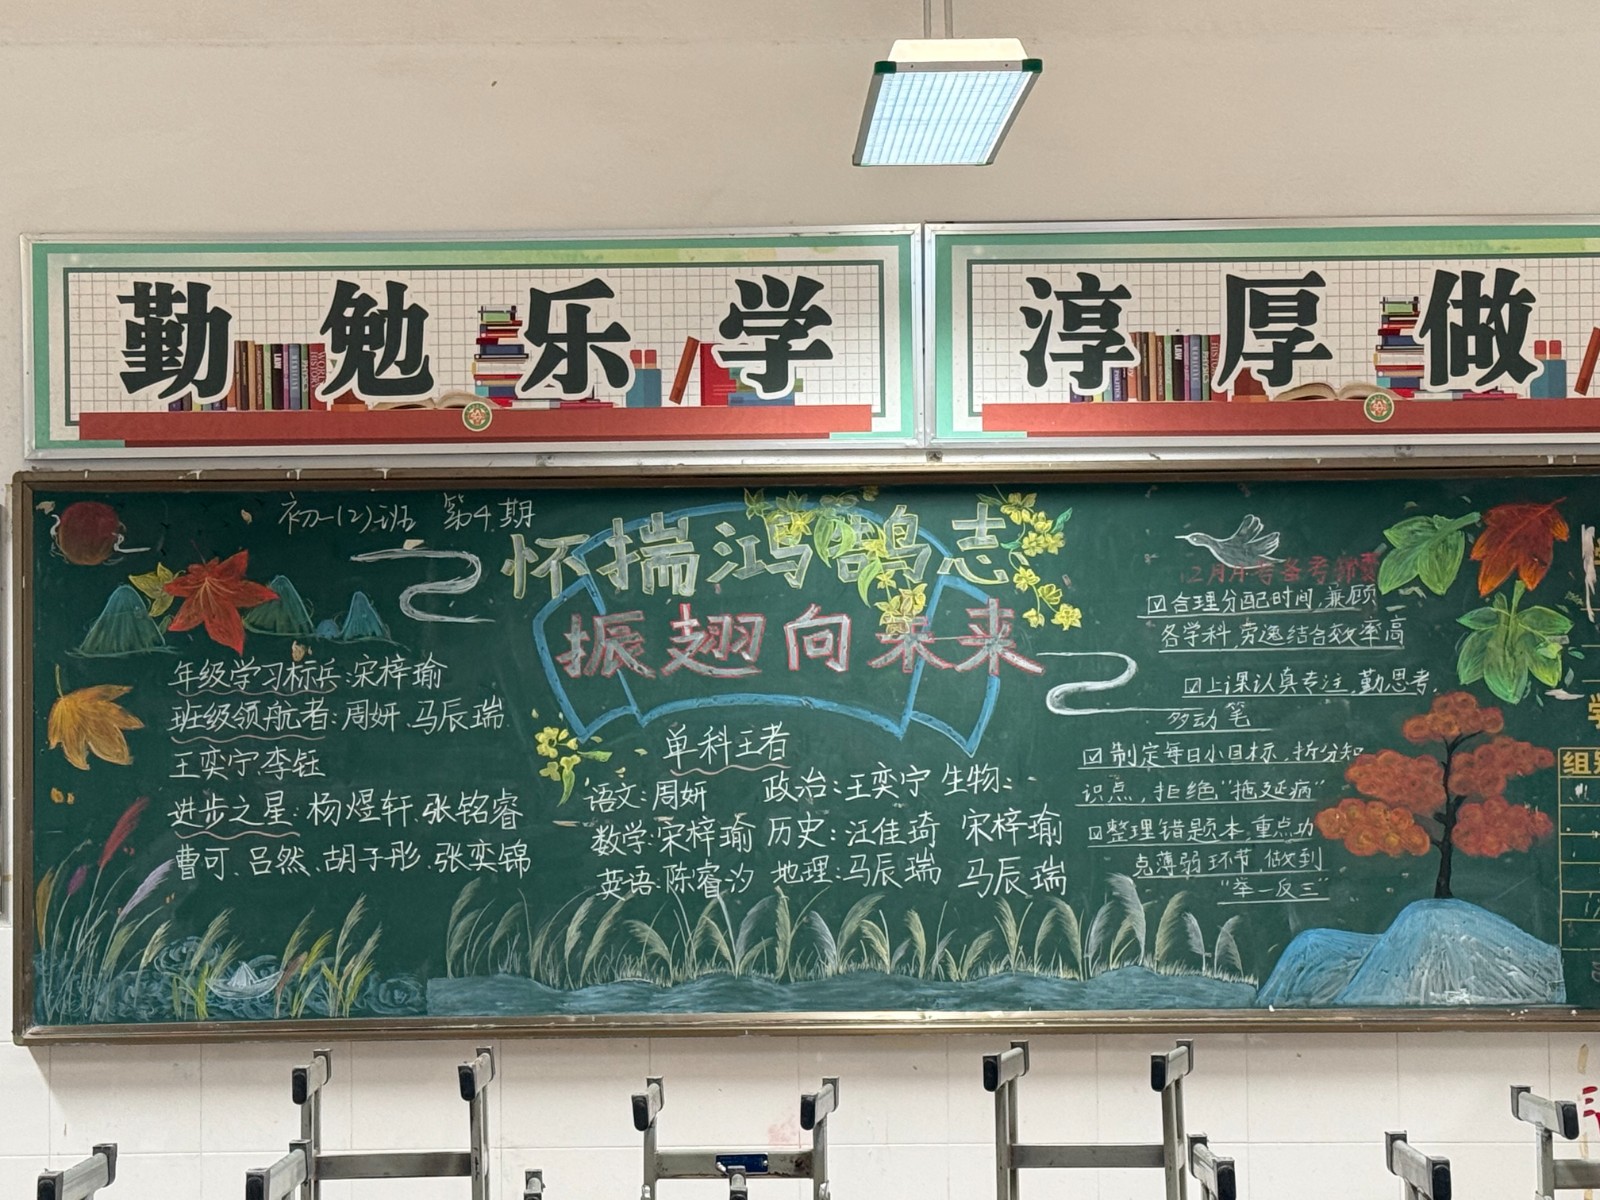 勤勉乐学
淳厚做
初一(2)班 第4期
怀揣鸿鹄志
振翅向未来
年级学习标兵:宋梓瑜
班级领航者:周妍、马辰瑞
王奕宁、李钰
进步之星:杨煜轩、张铭睿
曹可、吕然、胡子彤、张奕锦
单科王者
语文:周妍 政治:王奕宁 生物:
数学:宋梓瑜 历史:汪佳琦 宋梓瑜
英语:陈睿汐 地理:马辰瑞 马辰瑞
2月月考备考
☑合理分配时间,兼顾
各学科,劳逸结合效率高
☑上课认真专注,勤思考,
多动笔
☑制定每日小目标,拆分知
识点,拒绝“拖延病”
☑整理错题本,重点功
克薄弱环节,做到
“举一反三”